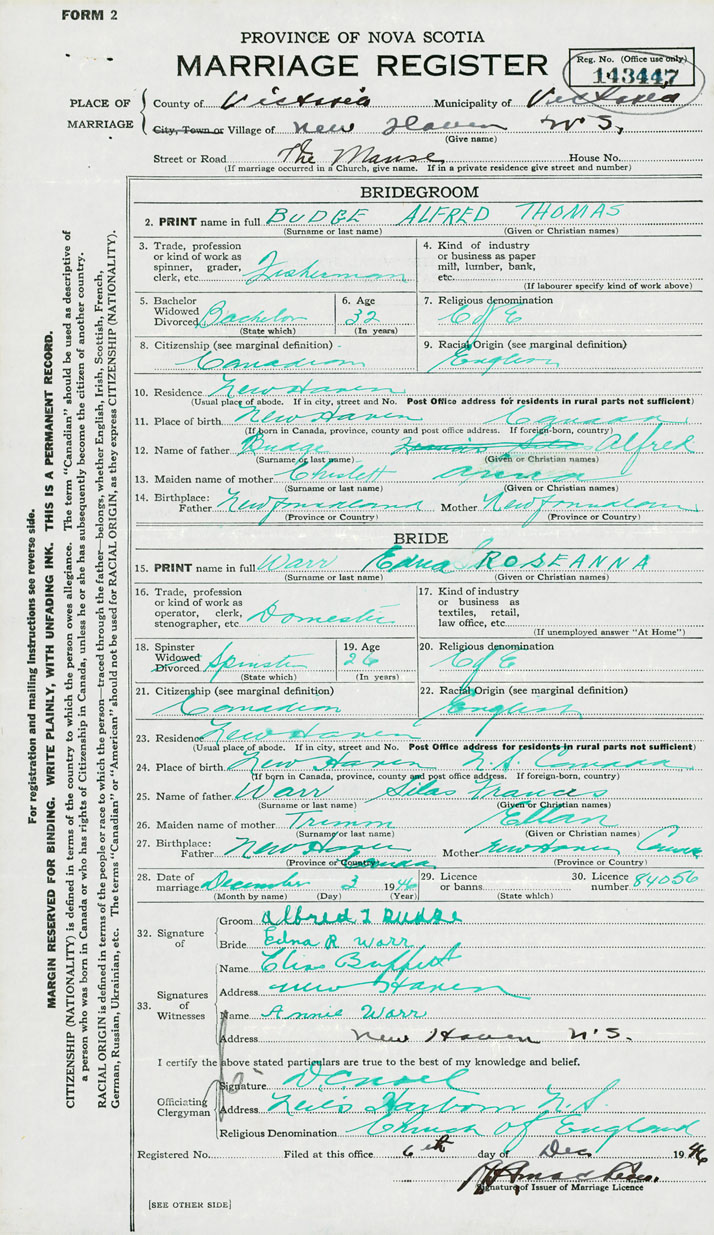 FORM 2
PROVINCE OF NOVA SCOTIA
MARRIAGE REGISTER
Reg. No. (Office use only)
143447
PLACE OF MARRIAGE
County of Victoria Municipality of Victoria
City, Town or Village of New Haven N.S.
(Give name)
Street or Road The Manse House No.
(If marriage occurred in a Church, give name. If in a private residence give street and number)
BRIDEGROOM
2. PRINT name in full BUDGE ALFRED THOMAS
(Surname or last name) (Given or Christian names)
3. Trade, profession or kind of work as spinner, grader, clerk, etc. Fisherman
4. Kind of industry or business as paper mill, lumber, bank, etc.
(If labourer specify kind of work above)
5. Bachelor Widowed Divorced Bachelor
(State which)
6. Age 32
(In years)
7. Religious denomination C of E
8. Citizenship (see marginal definition) Canadian
9. Racial Origin (see marginal definition) English
10. Residence New Haven
(Usual place of abode. If in city, street and No. Post Office address for residents in rural parts not sufficient)
11. Place of birth New Haven Canada
(If born in Canada, province, county and post office address. If foreign-born, country)
12. Name of father Budge Alfred
(Surname or last name) (Given or Christian names)
13. Maiden name of mother Chislett Anna
(Surname or last name) (Given or Christian names)
14. Birthplace: Father Newfoundland Mother Newfoundland
(Province or Country) (Province or Country)
BRIDE
15. PRINT name in full Warr Edna ROSEANNA
(Surname or last name) (Given or Christian names)
16. Trade, profession or kind of work as operator, clerk, stenographer, etc. Domestic
17. Kind of industry or business as textiles, retail, law office, etc.
(If unemployed answer "At Home")
18. Spinster Widowed Divorced Spinster
(State which)
19. Age 26
(In years)
20. Religious denomination C of E
21. Citizenship (see marginal definition) Canadian
22. Racial Origin (see marginal definition) English
23. Residence New Haven
(Usual place of abode. If in city, street and No. Post Office address for residents in rural parts not sufficient)
24. Place of birth New Haven N.S. Canada
(If born in Canada, province, county and post office address. If foreign-born, country)
25. Name of father Warr Silas Frances
(Surname or last name) (Given or Christian names)
26. Maiden name of mother Trimm Ellan
(Surname or last name) (Given or Christian names)
27. Birthplace: Father New Haven Canada Mother New Haven Canada
(Province or Country) (Province or Country)
28. Date of marriage December 3 1946
(Month by name) (Day) (Year)
29. Licence or banns
(State which)
30. Licence number 84056
32. Signature of
Groom Alfred T Budge
Bride Edna R Warr
33. Signatures of Witnesses
Name Buffett
Address New Haven
Name Annie Warr
Address New Haven N.S.
I certify the above stated particulars are true to the best of my knowledge and belief.
Officiating Clergyman
Signature
Address Neil's Harbour N.S.
Religious Denomination Church of England
Registered No. Filed at this office 6th day of Dec 1946
Signature of Issuer of Marriage Licence
[SEE OTHER SIDE]
For registration and mailing instructions see reverse side.
MARGIN RESERVED FOR BINDING. WRITE PLAINLY, WITH UNFADING INK. THIS IS A PERMANENT RECORD.
CITIZENSHIP (NATIONALITY) is defined in terms of the country to which the person owes allegiance. The term "Canadian" should be used as descriptive of
a person who was born in Canada or who has rights of Citizenship in Canada, unless he or she has subsequently become the citizen of another country.
RACIAL ORIGIN is defined in terms of the people or race to which the person—traced through the father—belongs, whether English, Irish, Scottish, French,
German, Russian, Ukrainian, etc. The terms "Canadian" or "American" should not be used for RACIAL ORIGIN, as they express CITIZENSHIP (NATIONALITY).